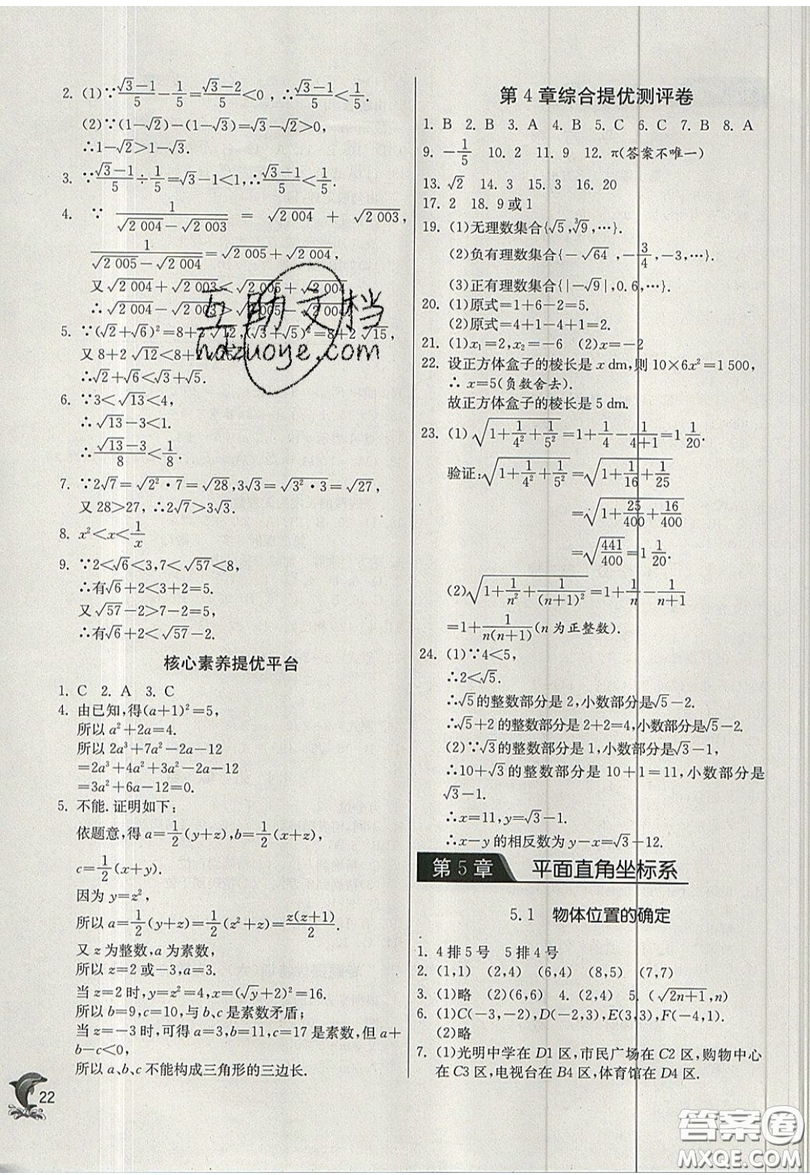 2. (1)∵(√3−1)/5−1/5=(√3−2)/5<0,∴(√3−1)/5<1/5.
(2)∵(1−√2)−(1−√3)=√3−√2>0,
∴1−√2>1−√3.
3. ∵(√3−1)/5÷1/5=√3−1<1,∴(√3−1)/5<1/5.
4. ∵ 1/(√2 004−√2 003) = √2 004 + √2 003,
1/(√2 005−√2 004)=√2 005+√2 004,
又√2 004+√2 003<√2 005+√2 004,
∴√2 004−√2 003>√2 005−√2 004.
5. ∵(√2+√6)²=8+2√12,(√3+√5)²=8+2√15,
又8+2√12<8+2√15,
∴√2+√6<√3+√5.
6. ∵3<√13<4,
∴√13−3<1.
∴(√13−3)/8<1/8.
7. ∵2√7=√(2²·7)=√28,3√3=√(3²·3)=√27,
又28>27,∴2√7>3√3.
8. x²<x<1/x
9. ∵2<√6<3,7<√57<8,
∴有√6+2<3+2=5.
又√57−2>7−2=5,
∴有√6+2<√57−2.
核心素养提优平台
1. C 2. A 3. C
4. 由已知,得(a+1)²=5,
所以a²+2a=4.
所以2a³+7a²−2a−12
=2a³+4a²+3a²−2a−12
=3a²+6a−12=0.
5. 不能.证明如下:
依题意,得a=1/2(y+z),b=1/2(x+z),
c=1/2(x+y).
因为y=z²,
所以a=1/2(y+z)=1/2(z²+z)=z(z+1)/2.
又z为整数,a为素数,
所以z=2或−3,a=3.
当z=2时,y=z²=4,x=(√y+z)²=16.
所以b=9,c=10,与b、c是素数矛盾;
当z=−3时,可得a=3,b=11,c=17是素数,但a+
所以a、b、c不能构成三角形的三边长.
22
第4章综合提优测评卷
1. B 2. B 3. A 4. B 5. C 6. C 7. B 8. A
9. −1/5 10. 2 11. 9 12. π(答案不唯一)
13. √2 14. 3 15. 3 16. 20
17. 2 18. 9或1
19. (1)无理数集合{√5,∛9,…}.
(2)负有理数集合{−√64,−3/4,−3,…}.
(3)正有理数集合{|−√9|,0.6,…}.
20. (1)原式=1+6−2=5.
(2)原式=4+1−4+1=2.
21. (1)x₁=2,x₂=−6 (2)x=−2
22. 设正方体盒子的棱长是x dm,则10×6x²=1 500,
∴ x=5(负数舍去).
故正方体盒子的棱长是5 dm.
23. (1)√(1+1/4²+1/5²)=1+1/4−1/(4+1)=1 1/20.
验证:√(1+1/4²+1/5²)=√(1+1/16+1/25)
=√(1+25/400+16/400)
=√(441/400)=1 1/20.
(2)√(1+1/n²+1/(n+1)²)=1+1/n−1/(n+1)
=1+1/(n(n+1))(n为正整数).
24. (1)∵4<5,
∴2<√5.
∴√5的整数部分是2,小数部分是√5−2.
∴√5+2的整数部分是2+2=4,小数部分是√5−2.
(2)∵√3的整数部分是1,小数部分是√3−1,
∴10+√3的整数部分是10+1=11,小数部分是
√3−1.
∴x=11,y=√3−1.
∴x−y的相反数为y−x=√3−12.
第5章 平面直角坐标系
5.1 物体位置的确定
1. 4排5号 5排4号
2. (1,1) (2,4) (6,4) (8,5) (7,7)
3. (1)略 (2)(6,6) 4. (2,4) 5. (√(2n+1),n)
6. (1)C(−3,−2),D(−2,3),E(3,3),F(4,−1).
(2)略
7. (1)光明中学在D1区,市民广场在C2区,购物中心
在C3区,电视台在B4区,体育馆在E4区.
互助文档
hdzuoye.com
答案圈
MXQE.COM